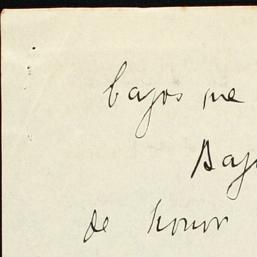 bajos que
Baj
de honor